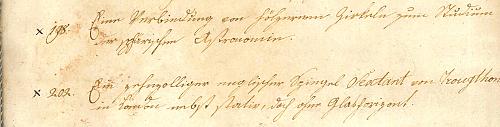 x 198. Eine Verbindung von höheren Zirkeln zum Studium
der sphärischen Astronomie.
x 202. Ein zehnzolliger englischer Spiegel Sextant von Trougthon
in London nebst Stativ, doch ohne Glashorizont.